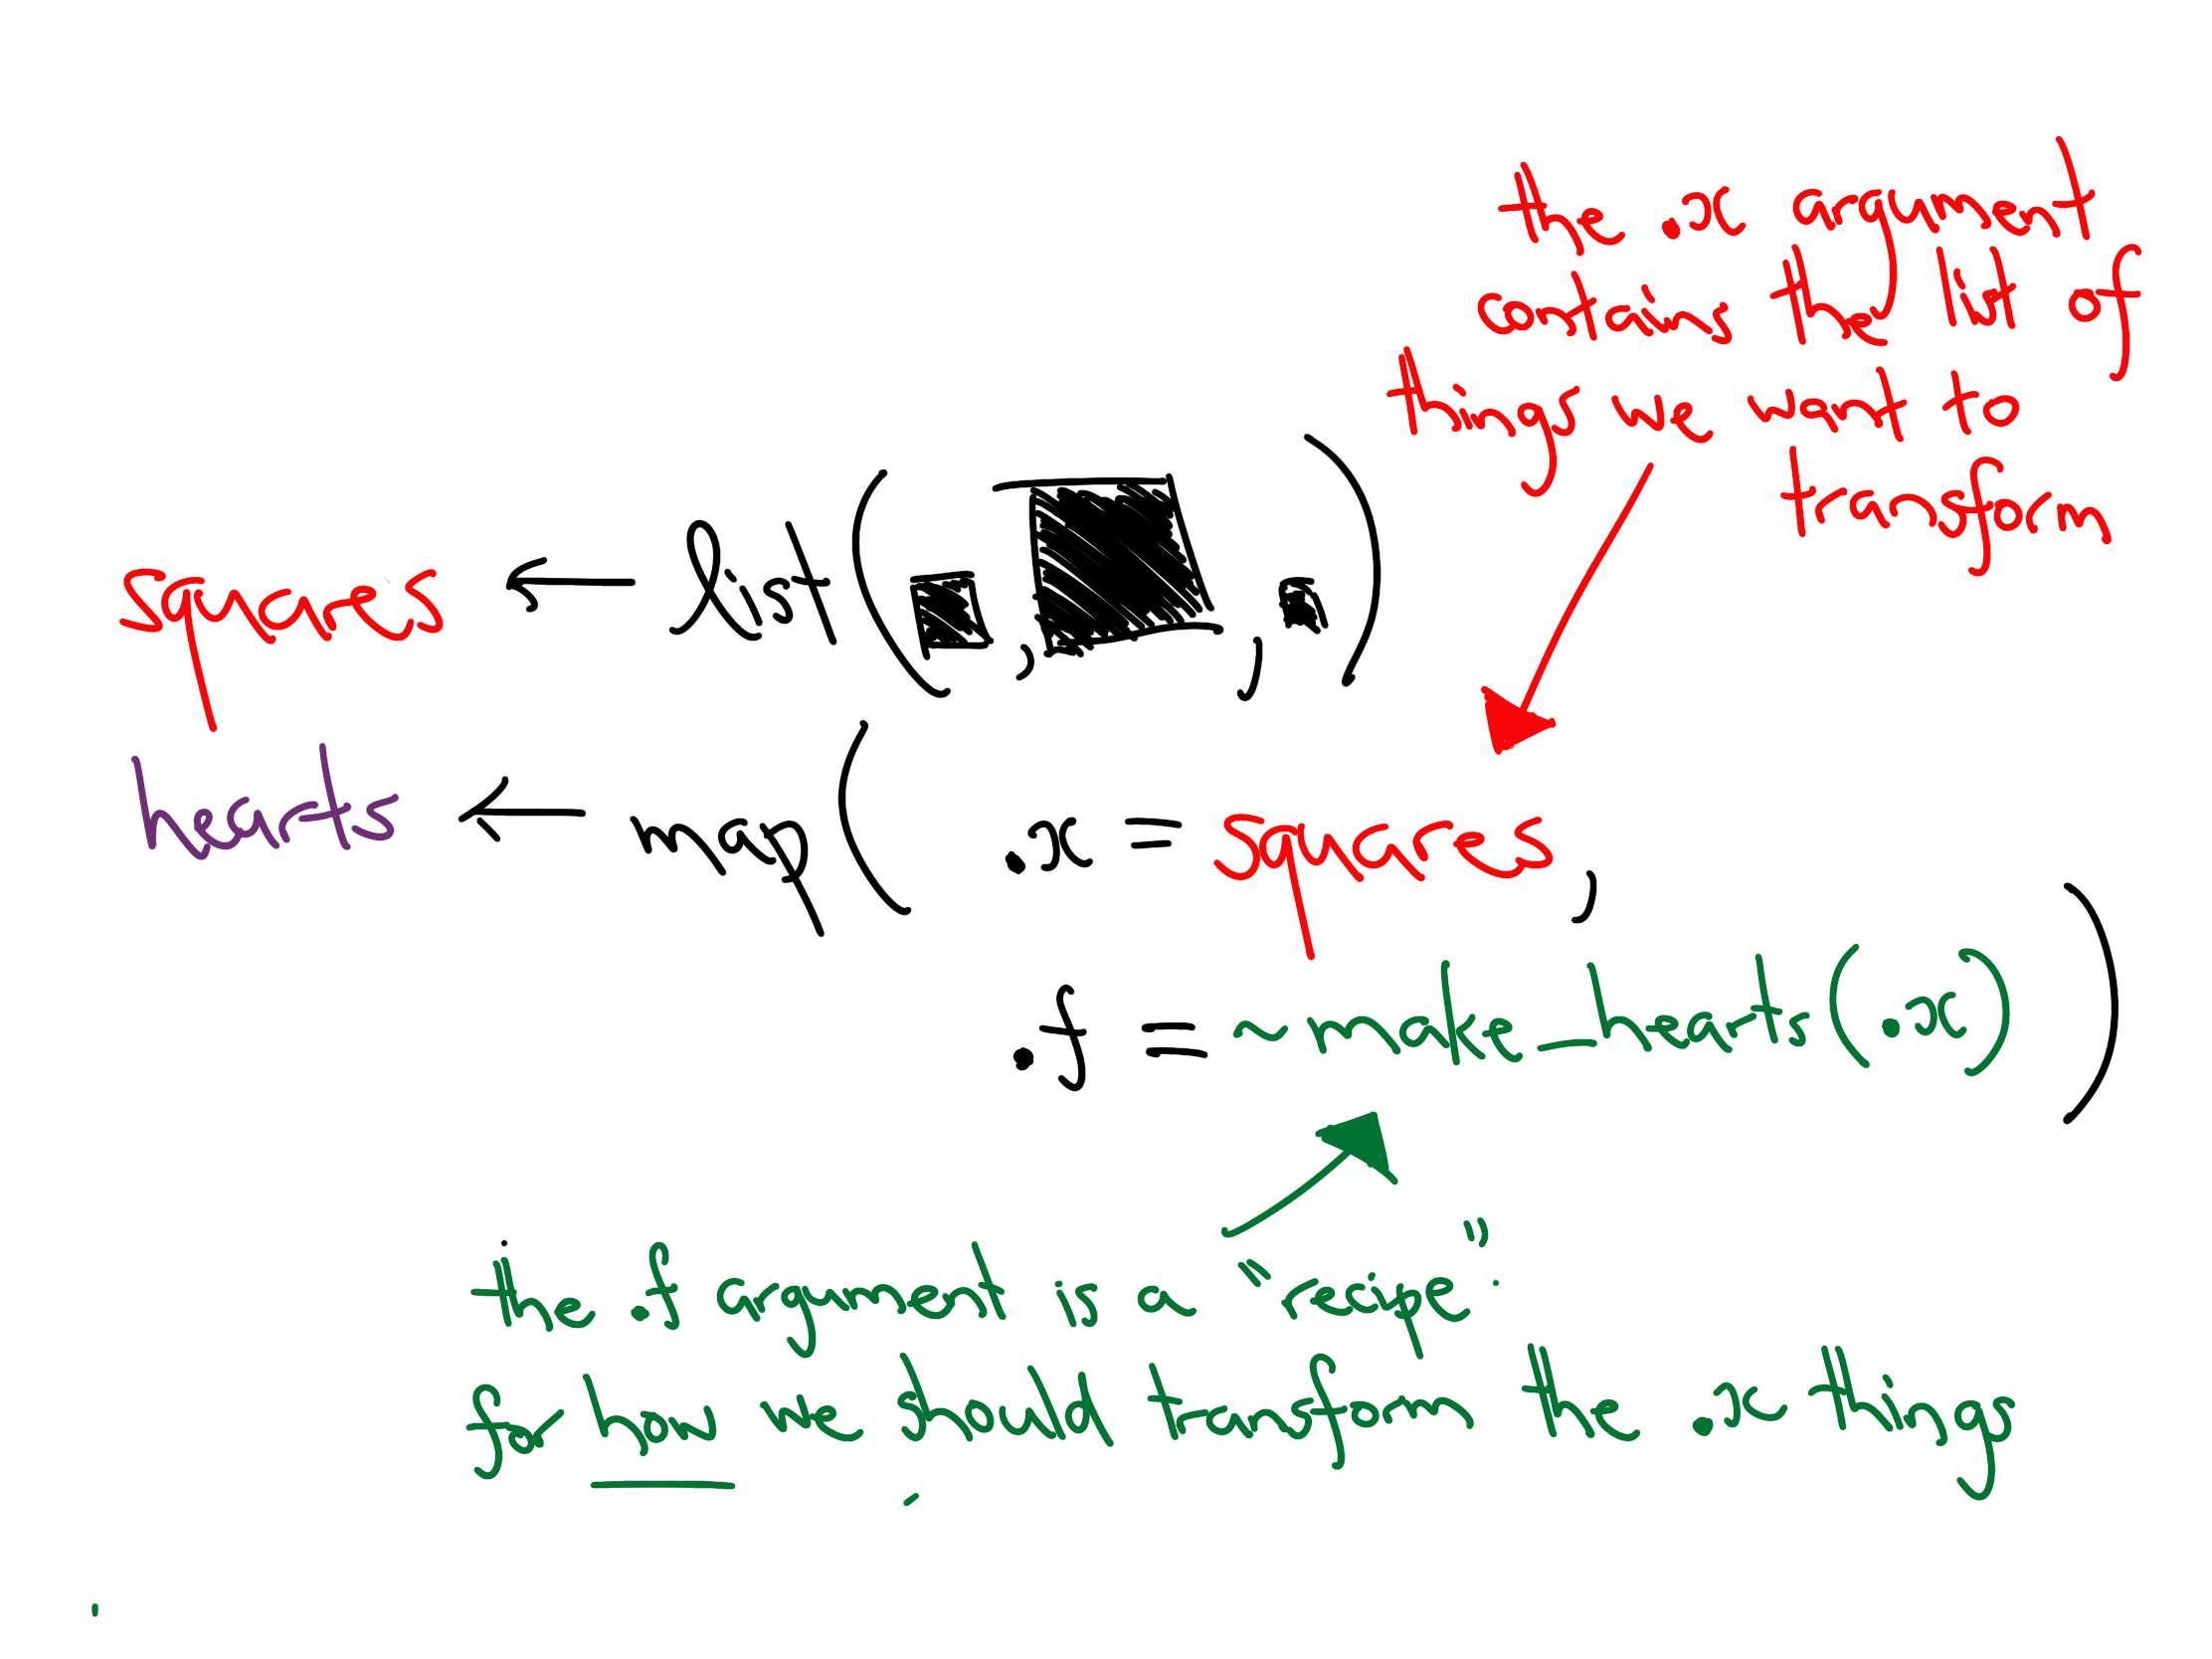 the .x argument
contains the list of
things we want to
transform
squares ← list( ■ , ■ , ■ )
hearts ← map( .x = squares ,
.f = ~ make_hearts(.x) )
the .f argument is a "recipe"
for how we should transform the .x things